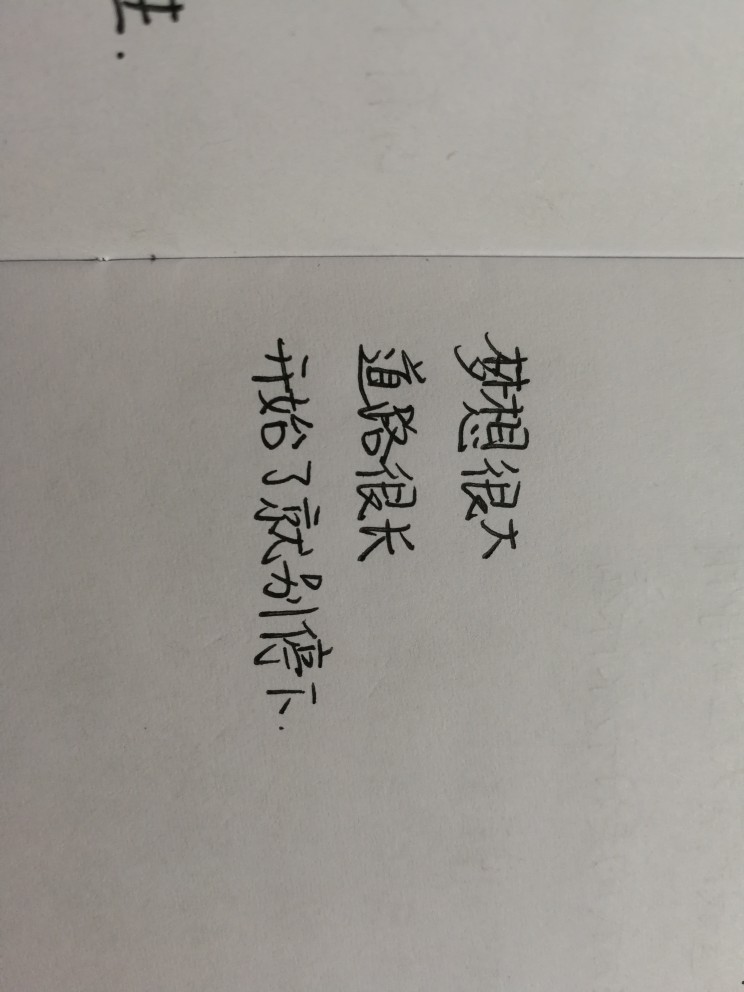 梦想很大
道路很长
开始了就别停下.